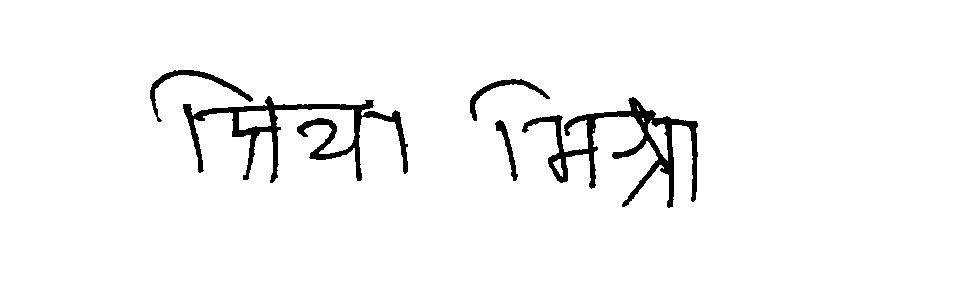 प्रिया मिश्रा